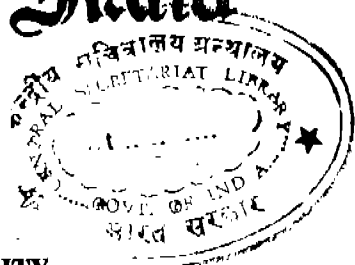 India
केन्द्रीय सचिवालय ग्रन्थालय
CENTRAL SECRETARIAT LIBRARY
GOVT. OF INDIA
भारत सरकार